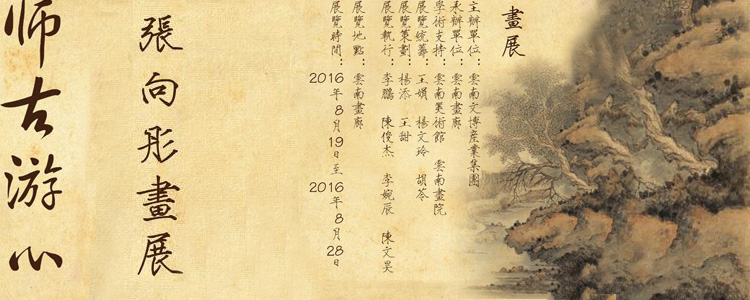 畫展
主辦單位：雲南文博產業集團
承辦單位：雲南畫廊
學術支持：雲南美術館 雲南畫院
展覽統籌：王娟 楊文玲 胡苓
展覽策劃：楊添 王甜
展覽執行：李鵬 陳俊杰 李婉辰 陳文昊
展覽地點：雲南畫廊
展覽時間：2016年8月19日至2016年8月28日
張向彤畫展
師古游心